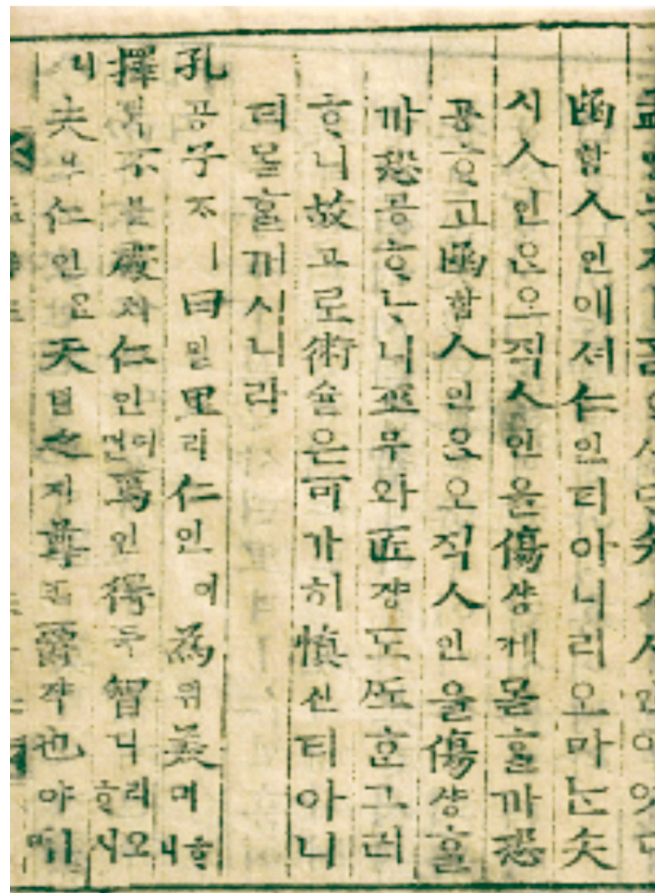 函함人인에셔仁인티아니리오마ᄂᆞᆫ矢
시人인ᄋᆞᆫ오직人인을傷샹케몯ᄒᆞᆯ까恐
공ᄒᆞ고函함人인ᄋᆞᆫ오직人인을傷샹ᄒᆞᆯ
까恐공ᄒᆞᄂᆞ니巫무와匠쟝도ᄯᅩᄒᆞᆫ그러
ᄒᆞ니故고로術슐은可가히慎신티아니
티몯ᄒᆞᆯ꺼시니라
孔공子ᄌᆞㅣ曰왈里리仁인이為위美미ᄒᆞ니
擇ᄐᆡᆨ不블處쳐仁인이면焉언得득智디리오ᄒᆞ시
니夫부仁인은天텬之지尊존爵쟉也야ㅣ며